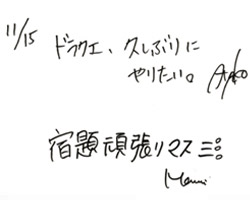 11/15
ドラクエ、久しぶりに
やりたい。
宿題頑張リマス